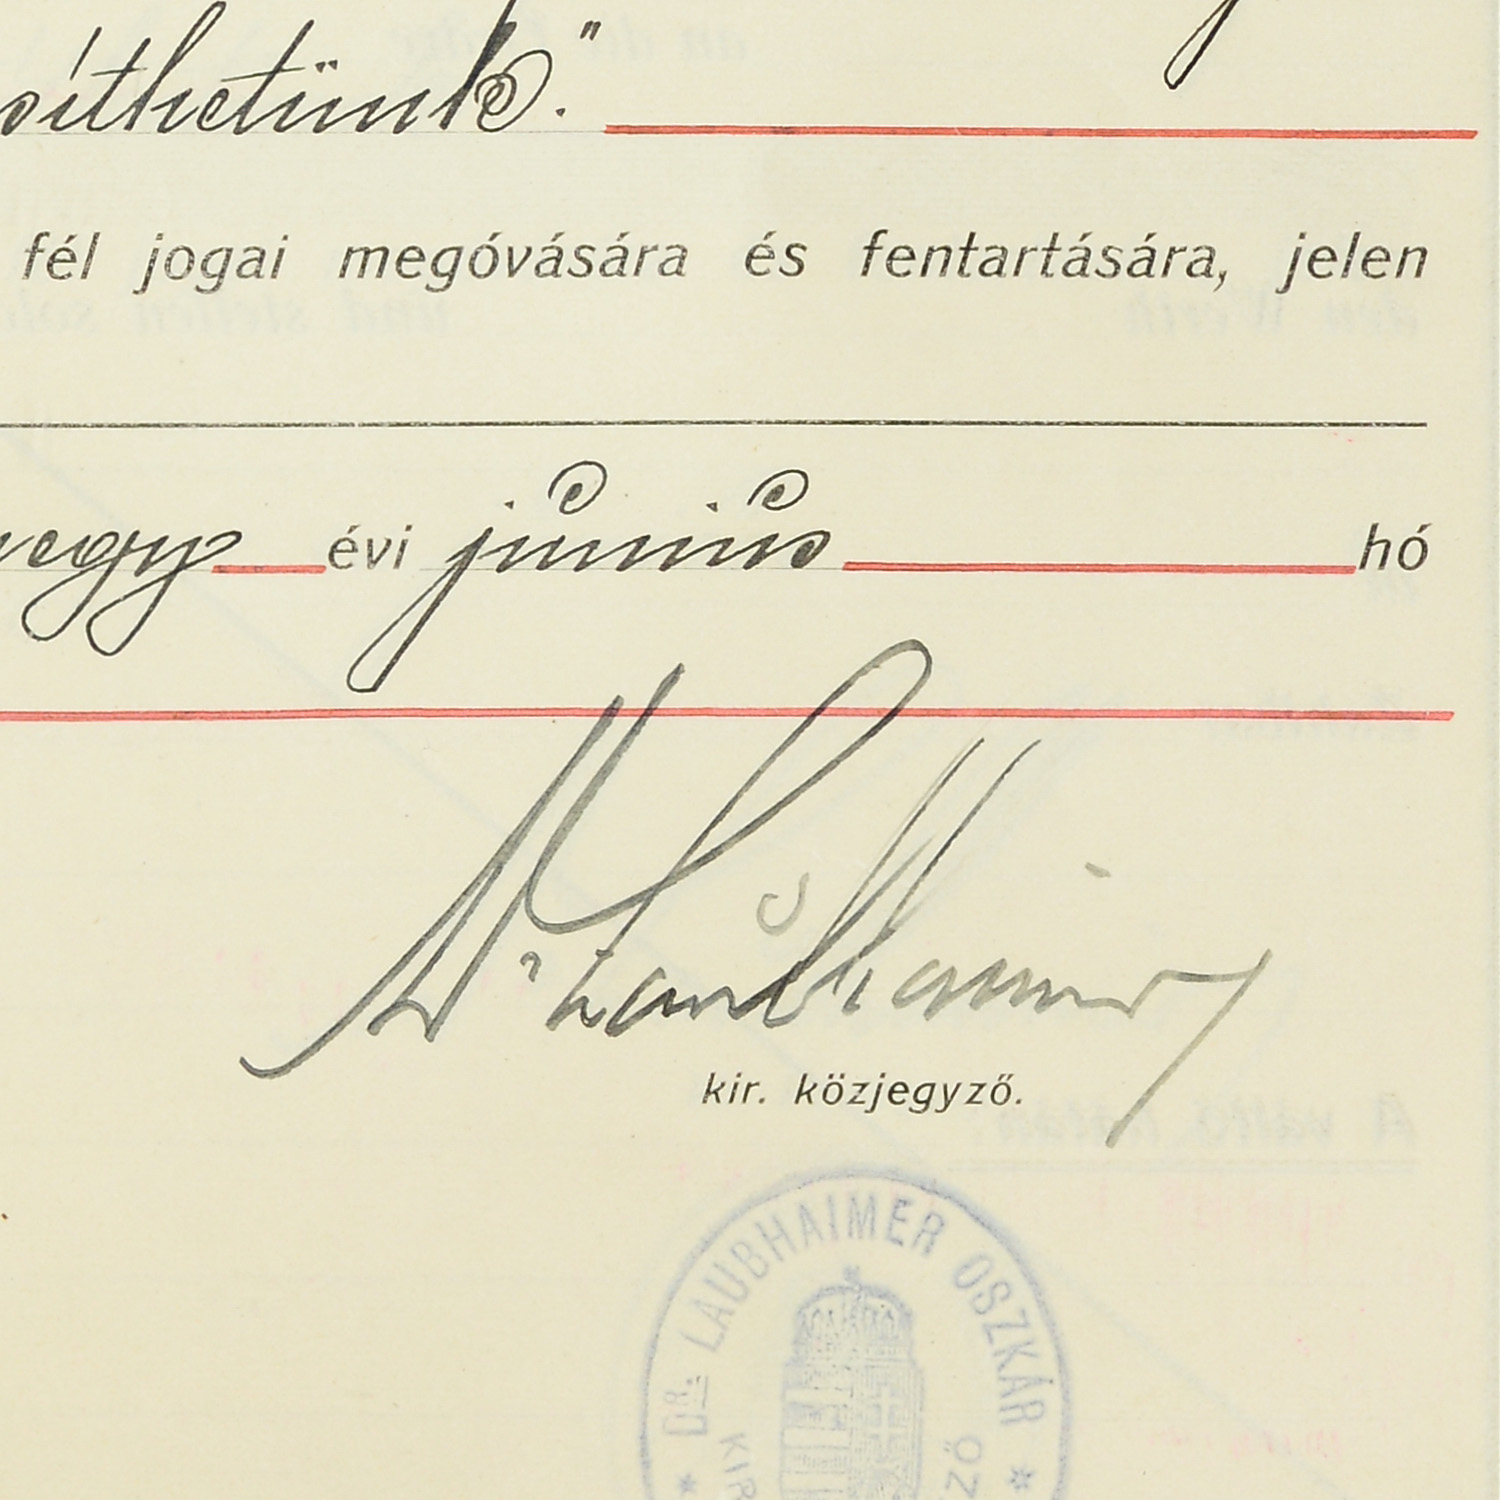 síthetünk."
fél jogai megóvására és fentartására, jelen
évi június hó
Dr Laubhaimer
kir. közjegyző.
* DR. LAUBHAIMER OSZKÁR *
KIR
ZŐ